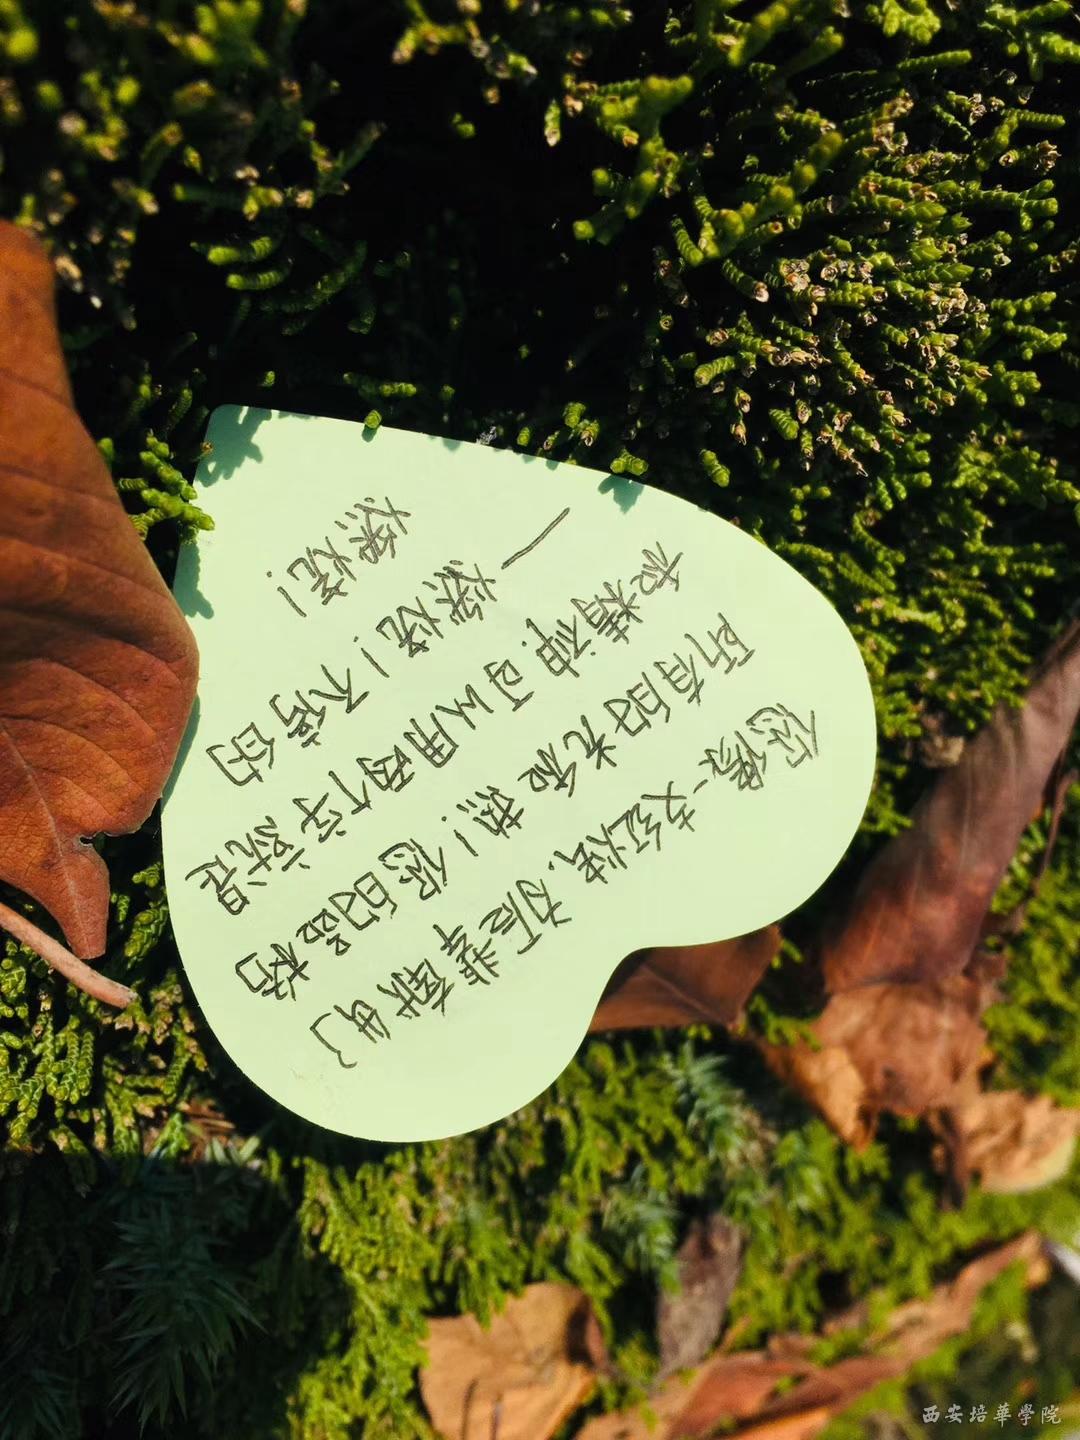 你像一支红烛,为后辈献出了
所有的光和热!你的品格
和精神可以用两个字就是
—燃烧!不停的
燃烧!
西安培華學院